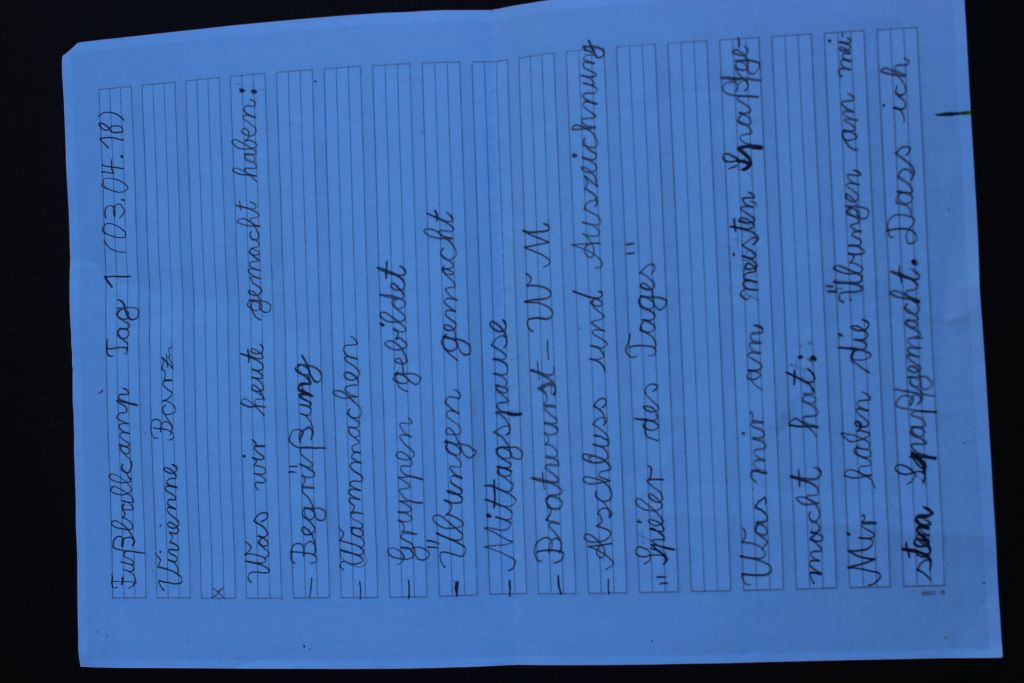 Fußballcamp Tag 1 (03.04.18)
Vivienne Barz
x
Was wir heute gemacht haben:
- Begrüßung
- Warmmachen
- Gruppen gebildet
- Übungen gemacht
- Mittagspause
- Bratwurst-WM
- Abschluss und Auszeichnung
"Spieler des Tages"
Was mir am meisten Spaßge-
macht hat:
Mir haben die Übungen am mei
stem Spaßgemacht. Dass ich